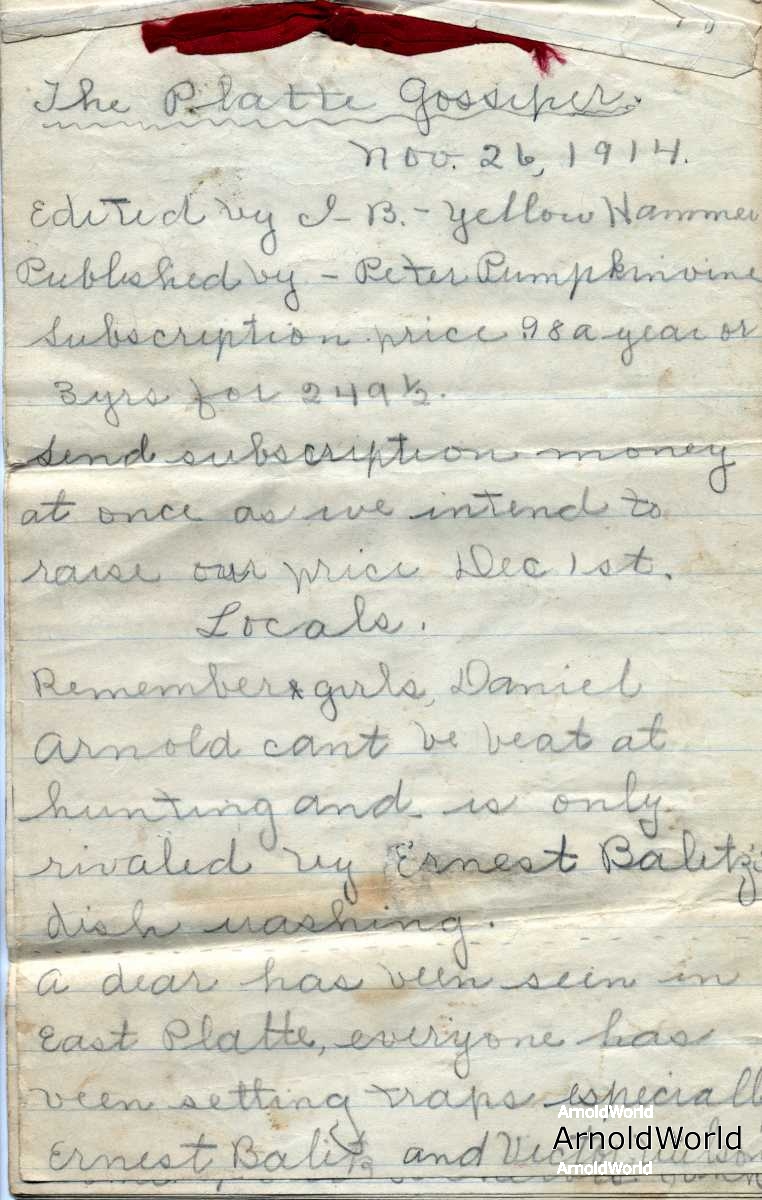 The Platte Gossiper.
Nov. 26, 1914.
Edited by I-B.-Yellow Hammer
Published by - Peter Pumpkinvine
Subscription price .98 a year or
3yrs for 2 49 ½.
Send subscription money
at once as we intend to
raise our price Dec 1st.
Locals.
Remember girls, Daniel
Arnold cant be beat at
hunting and is only
rivaled by Ernest Balitz
dish washing.
A dear has been seen in
East Platte, everyone has
been setting traps especiall
Ernest Balitz and Victor Nelson
ArnoldWorld
ArnoldWorld
ArnoldWorld